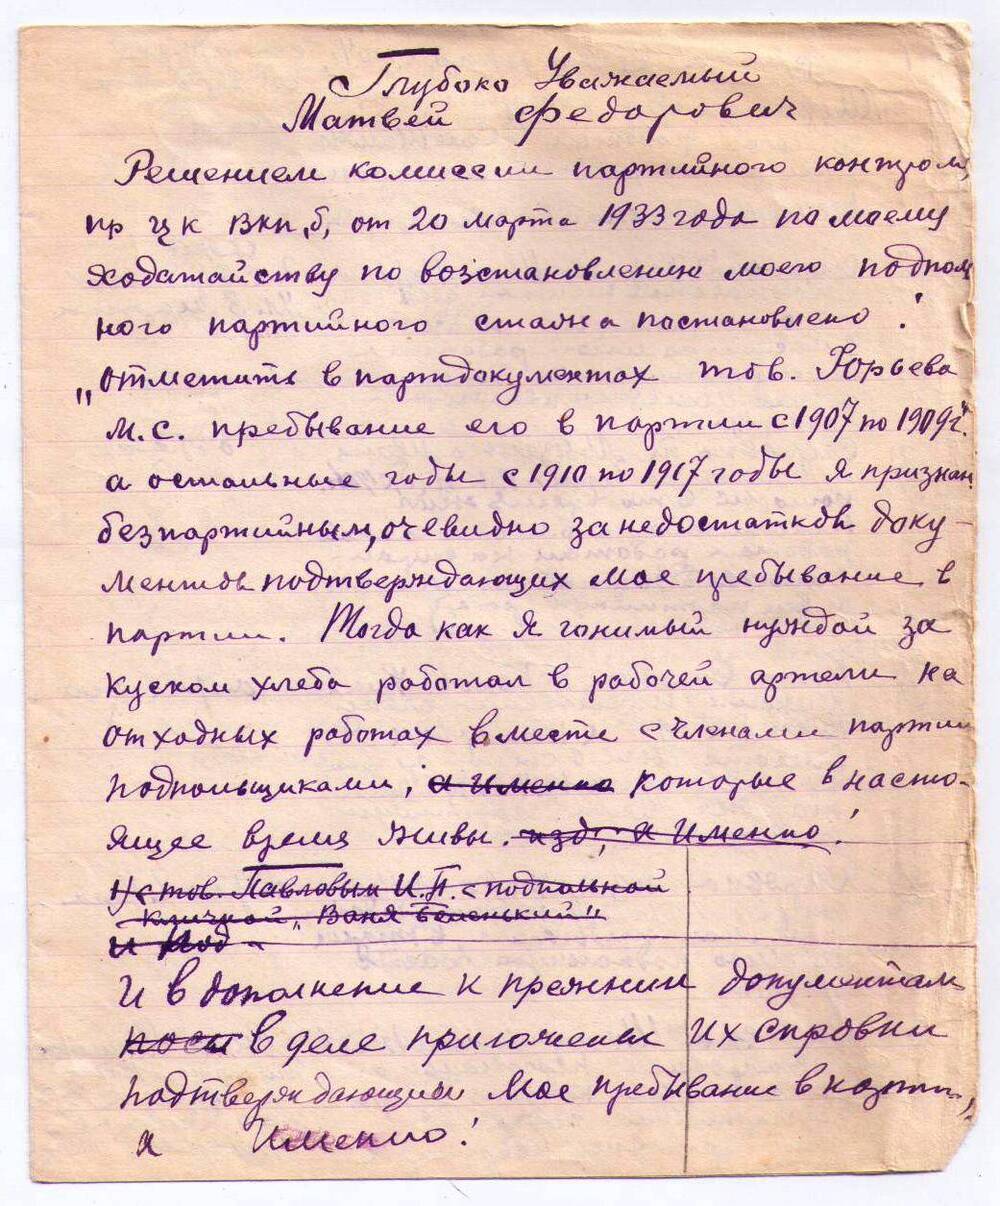 Глубоко Уважаемый
Матвей Федорович
Решением комиссии партийного контроля
пр ЦК ВКП,б, от 20 марта 1933 года по моему
ходатайству по возстановлению моего подполь
ного партийного стажа постановлено!
„отметить в партдокументах тов. Юрьева
М.С. пребывание его в партии с 1907 по 1909 г."
а остальные годы с 1910 по 1917 годы я признан
безпартийным, очевидно за недостатков доку-
ментов подтверждающих мое пребывание в
партии. Тогда как я гонимый нуждой за
куском хлеба работал в рабочей артели на
отходных работах вместе с членами партии
подпольщиками, а именно которые в насто-
ящее время живы. изд, а Именно!
1) с тов. Павловым И.П. с подпольной
кличкой „Ваня Беленький"
и под
И в дополнение к прежним документам
посл в деле приложены их справки
подтверждающии мое пребывание в партии,
а Именно!